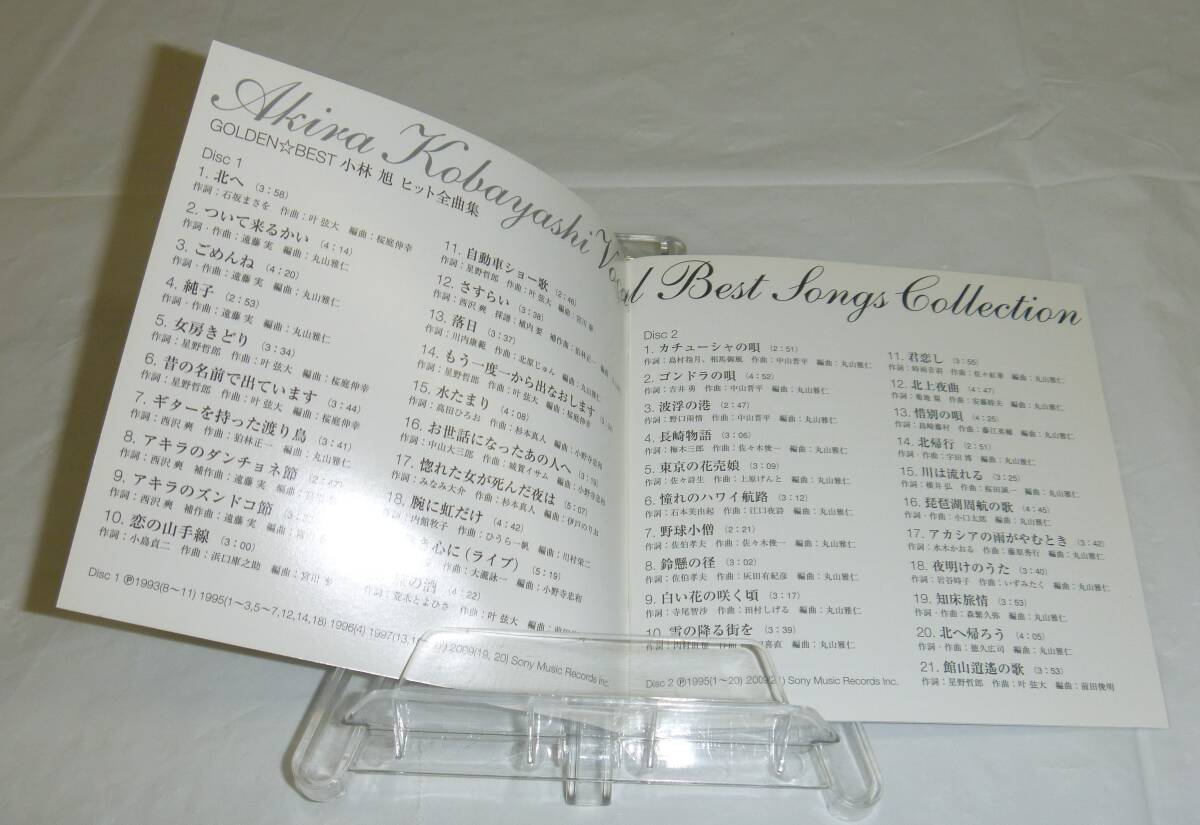 Akira Kobayashi Vocal Best Songs Collection
GOLDEN☆BEST 小林 旭 ヒット全曲集
Disc 1
1. 北へ (3:58)
作詞:石坂まさを 作曲:叶 弦大 編曲:桜庭伸幸
2. ついて来るかい (4:14)
作詞・作曲:遠藤 実 編曲:丸山雅仁
3. ごめんね (4:20)
作詞・作曲:遠藤 実 編曲:丸山雅仁
4. 純子 (2:53)
作詞・作曲:遠藤 実 編曲:丸山雅仁
5. 女房きどり (3:34)
作詞:星野哲郎 作曲:叶 弦大 編曲:桜庭伸幸
6. 昔の名前で出ています (3:44)
作詞:星野哲郎 作曲:叶 弦大 編曲:桜庭伸幸
7. ギターを持った渡り鳥 (3:41)
作詞:西沢 爽 作曲:狛林正一 編曲:丸山雅仁
8. アキラのダンチョネ節 (2:47)
作詞:西沢 爽 補作曲:遠藤 実
9. アキラのズンドコ節
作詞:西沢 爽 補作曲:遠藤 実
10. 恋の山手線 (3:00)
作詞:小島貞二 作曲:浜口庫之助 編曲:宮川
11. 自動車ショー歌 (2:46)
作詞:星野哲郎 作曲:叶 弦大 編曲:宮川 泰
12. さすらい (3:38)
作詞:西沢 爽 採譜:植内 要 補作曲:狛林正一
13. 落日 (3:37)
作詞:川内康範 作曲:北原じゅん 編曲:丸山雅仁
14. もう一度一から出なおします
作詞:星野哲郎 作曲:叶 弦大 編曲:桜庭伸幸
15. 水たまり (4:08)
作詞:高田ひろお 作曲:杉本真人 編曲:小野寺忠和
16. お世話になったあの人へ (3:19)
作詞:中山大三郎 作曲:城賀イサム 編曲:小野寺忠和
17. 惚れた女が死んだ夜は (5:07)
作詞:みなみ大介 作曲:杉本真人 編曲:伊戸のりお
18. 腕に虹だけ (4:42)
作詞:内館牧子 作曲:ひうら一帆 編曲:川村栄二
心に(ライブ) (5:19)
作曲:大瀧詠一 編曲:小野寺忠和
の酒 (4:22)
荒木とよひさ 作曲:叶 弦大
Disc 1 Ⓟ1993(8〜11) 1995(1〜3,5〜7,12,14,18) 1996(4) 1997(13, 2009(19, 20) Sony Music Records Inc.
Disc 2
1. カチューシャの唄 (2:51)
作詞:島村抱月、相馬御風 作曲:中山晋平 編曲:丸山雅仁
2. ゴンドラの唄 (4:52)
作詞:吉井 勇 作曲:中山晋平 編曲:丸山雅仁
3. 波浮の港 (2:47)
作詞:野口雨情 作曲:中山晋平 編曲:丸山雅仁
4. 長崎物語 (3:06)
作詞:梅木三郎 作曲:佐々木俊一 編曲:丸山雅仁
5. 東京の花売娘 (3:09)
作詞:佐々詩生 作曲:上原げんと 編曲:丸山雅仁
6. 憧れのハワイ航路 (3:12)
作詞:石本美由起 作曲:江口夜詩 編曲:丸山雅仁
7. 野球小僧 (2:21)
作詞:佐伯孝夫 作曲:佐々木俊一 編曲:丸山雅仁
8. 鈴懸の径 (3:02)
作詞:佐伯孝夫 作曲:灰田有紀彦 編曲:丸山雅仁
9. 白い花の咲く頃 (3:17)
作詞:寺尾智沙 作曲:田村しげる 編曲:丸山雅仁
10. 雪の降る街を (3:39)
喜直 編曲:丸山雅仁
11. 君恋し (3:55)
作詞:時雨音羽 作曲:佐々紅華 編曲:丸山雅仁
12. 北上夜曲 (4:47)
作詞:菊地 規 作曲:安藤睦夫 編曲:丸山雅仁
13. 惜別の唄 (4:25)
作詞:島崎藤村 作曲:藤江英輔 編曲:丸山雅仁
14. 北帰行 (2:51)
作詞・作曲:宇田 博 編曲:丸山雅仁
15. 川は流れる (3:25)
作詞:横井 弘 作曲:桜田誠一 編曲:丸山雅仁
16. 琵琶湖周航の歌 (4:45)
作詞・作曲:小口太郎 編曲:丸山雅仁
17. アカシアの雨がやむとき (3:42)
作詞:水木かおる 作曲:藤原秀行 編曲:丸山雅仁
18. 夜明けのうた (3:40)
作詞:岩谷時子 作曲:いずみたく 編曲:丸山雅仁
19. 知床旅情 (3:53)
作詞・作曲:森繁久弥 編曲:丸山雅仁
20. 北へ帰ろう (4:05)
作詞・作曲:徳久広司 編曲:丸山雅仁
21. 館山逍遙の歌 (3:53)
作詞:星野哲郎 作曲:叶 弦大 編曲:前田俊明
Disc 2 Ⓟ1995(1〜20) 2009(21) Sony Music Records Inc.